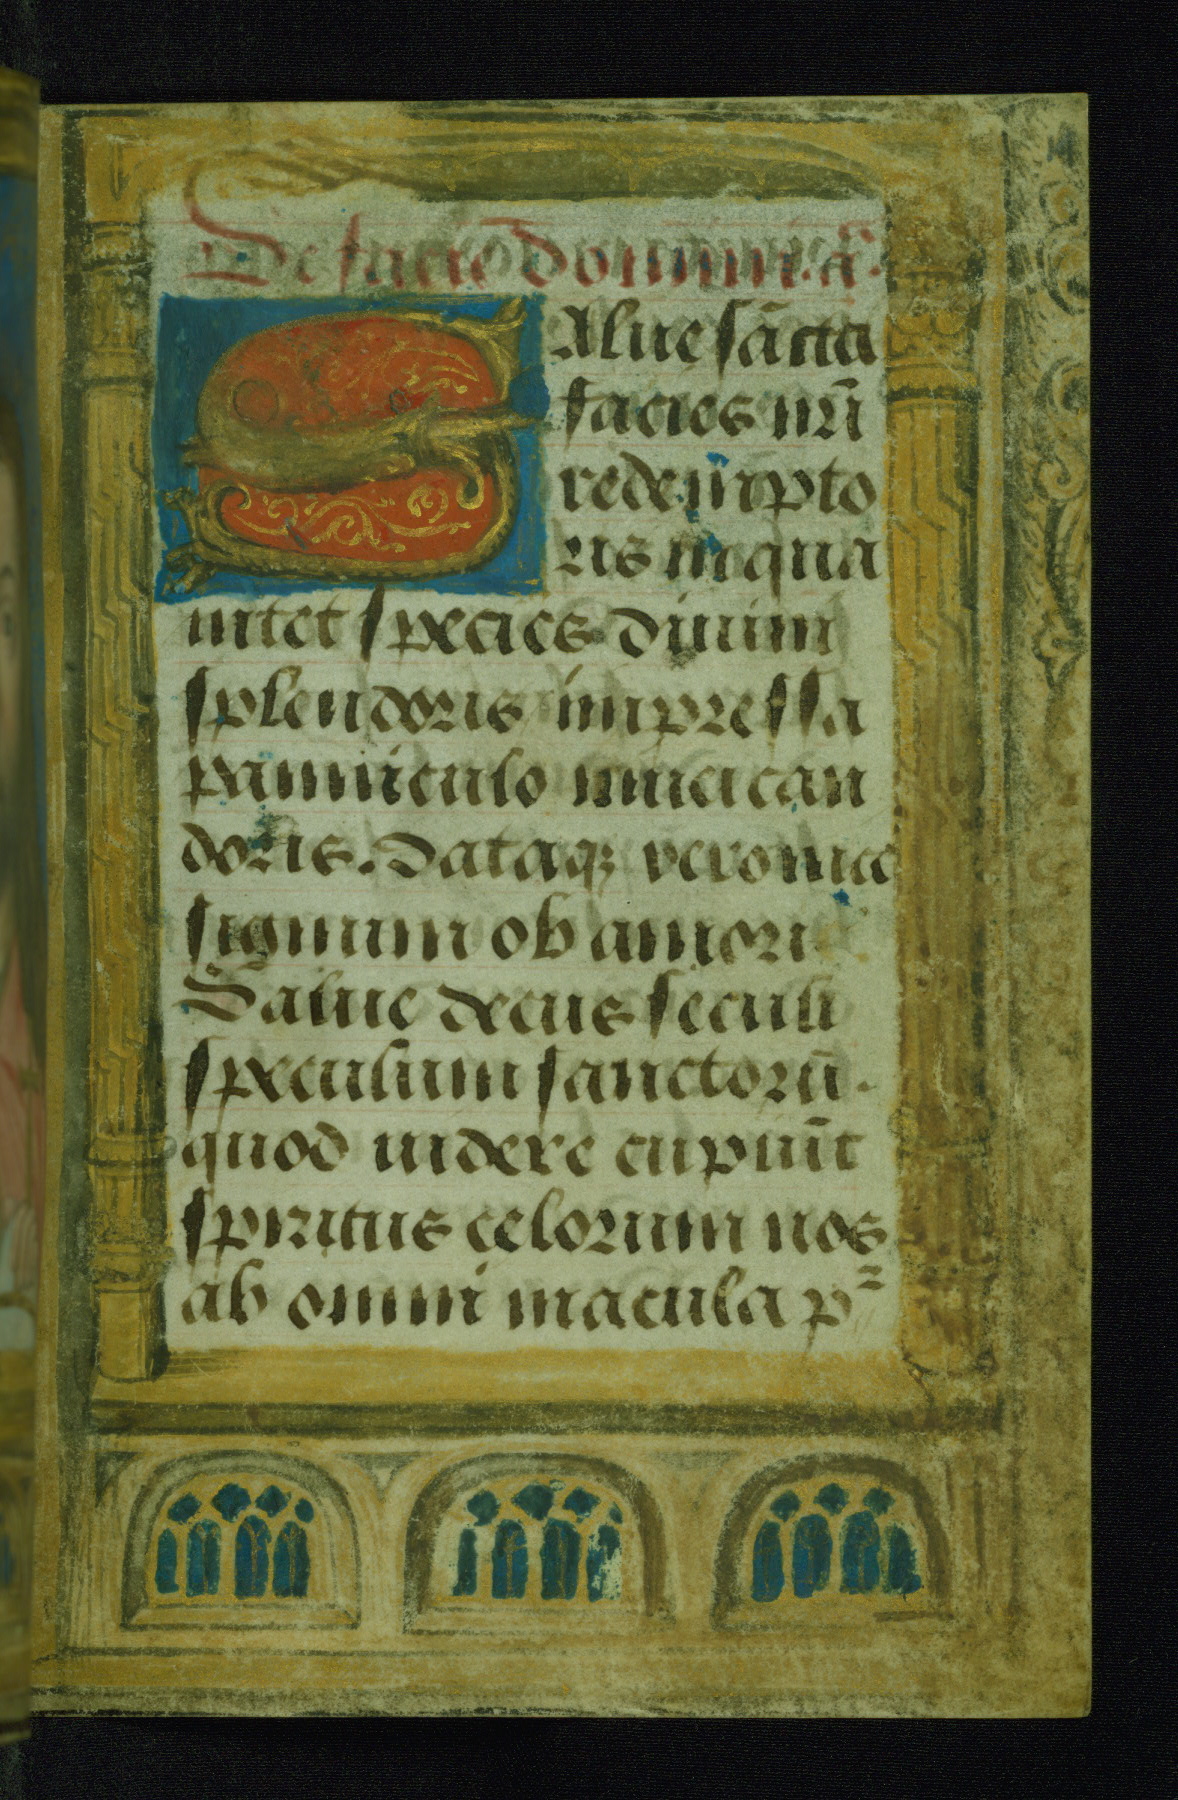 De facie dominica.
Salue sācta
facies nr̄i
redempto
ris in qua
nitet species diuini
splendoris impressa
panniculo niuei can
doris. Dataqꝫ veronice
signum ob amori
Salue decus seculi
speculum sanctorū.
quod uidere cupiūt
spiritus celorum nos
ab omni macula p